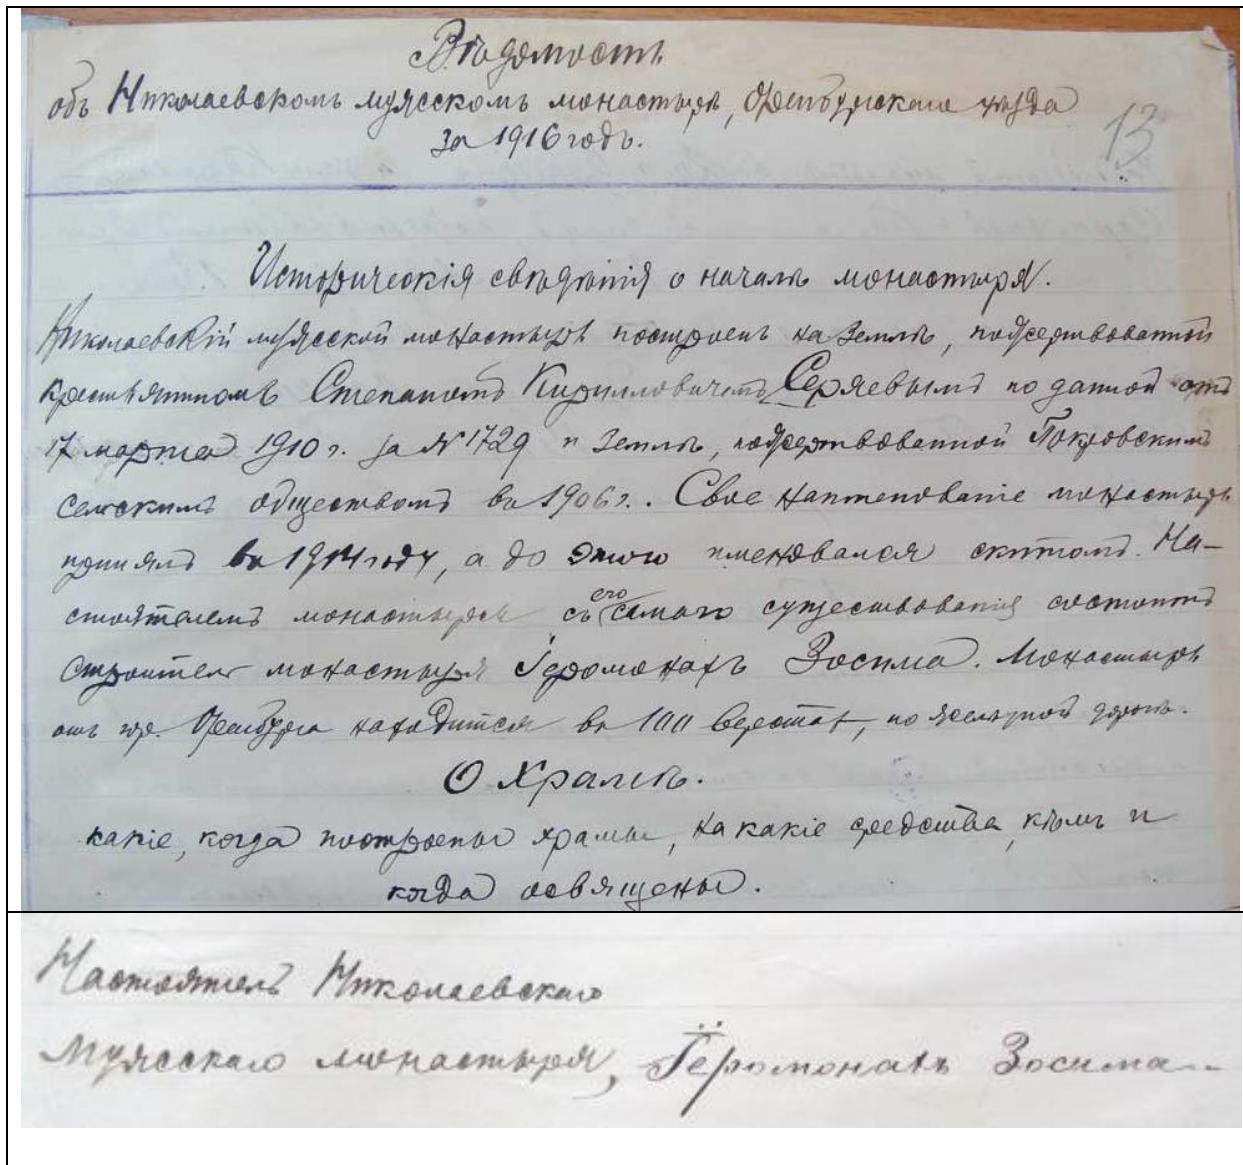 Вѣдомость
объ Николаевскомъ муясскомъ монастырѣ, Оренбургскаго уѣзда
за 1916 годъ.
13
Историческія свѣдѣнія о началѣ монастыря.
Николаевскій муясской монастырь построенъ на землѣ, пожертвованной
крестьяниномъ Степаномъ Кирилловичемъ Серяевымъ по данной отъ
17 марта 1910 г. за № 1729 и землѣ, пожертвованной Покровскимъ
сельскимъ обществомъ въ 1906 г.. Свое наименованіе монастырь
принялъ въ 1914 году, а до этого именовался скитомъ. На-
стоятелемъ монастыря съ его самаго существованія состоитъ
строитель монастыря Іеромонахъ Зосима. Монастырь
отъ гор. Оренбурга находится въ 100 верстахъ, по желѣзной дорогѣ.
О Храмѣ.
какіе, когда построены храмы, на какіе средства, кѣмъ и
когда освящены.
Настоятель Николаевскаго
Муясскаго монастыря, Іеромонахъ Зосима